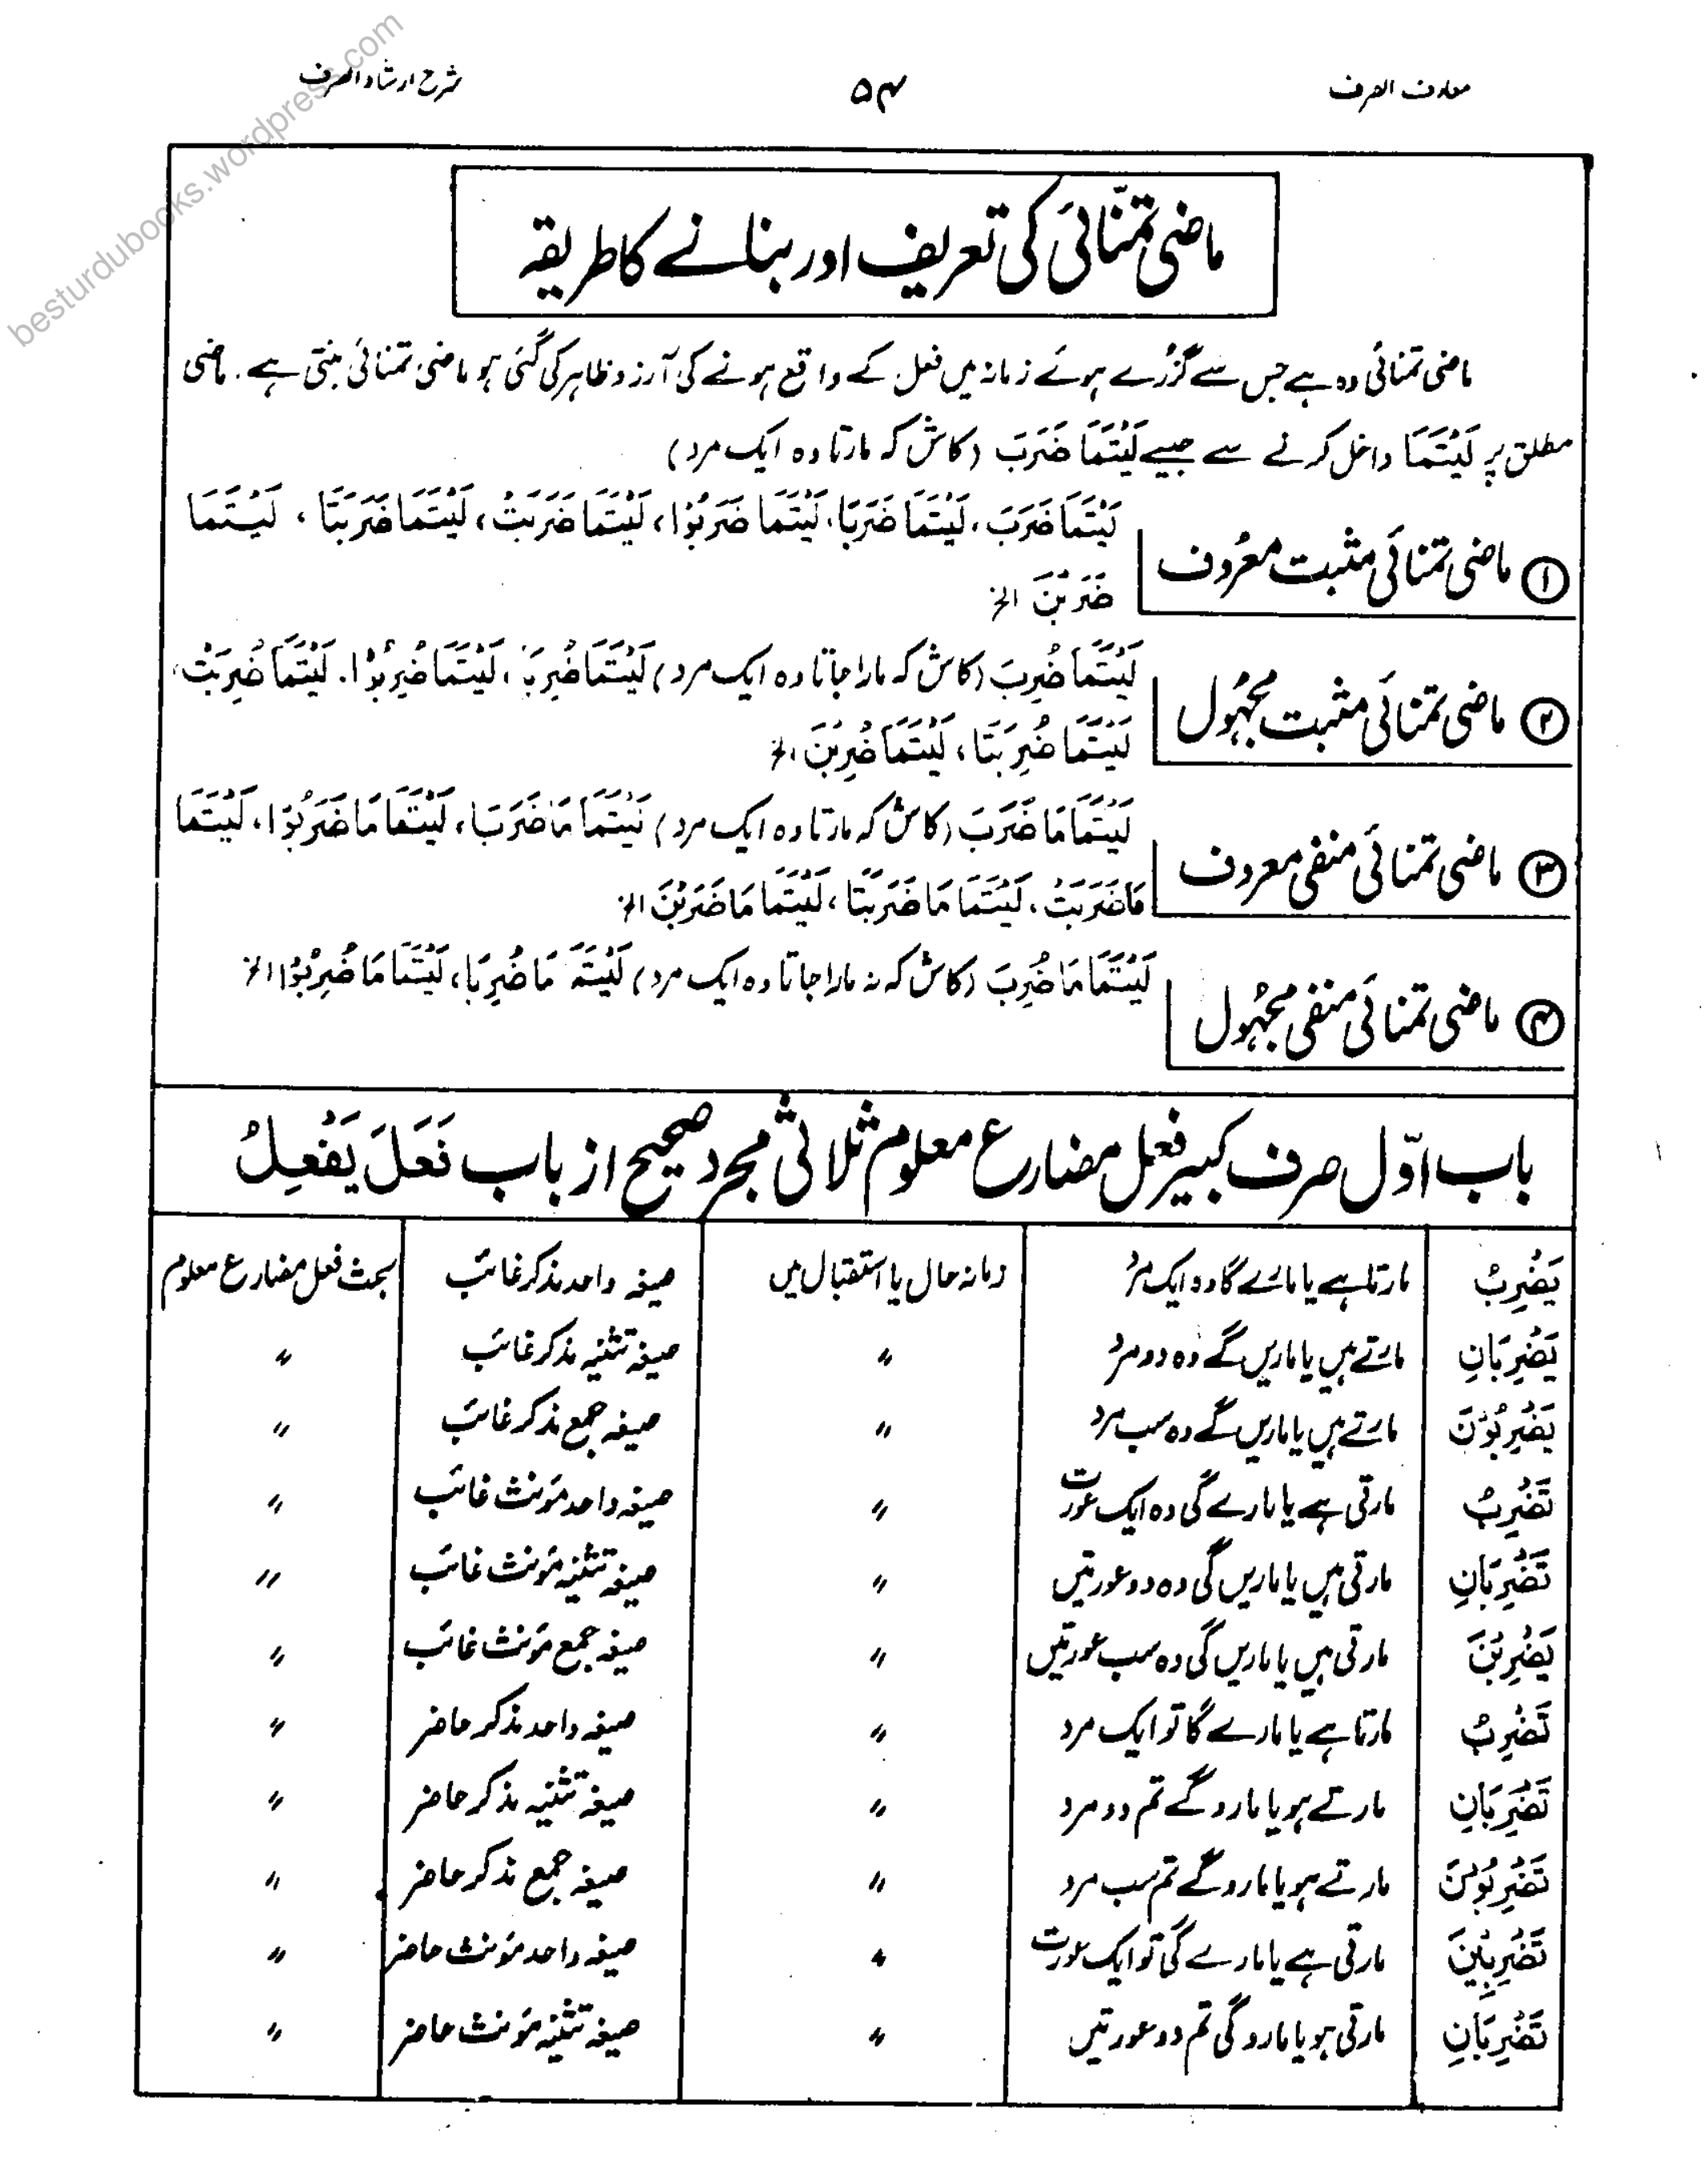 معارف الصرف
۵۴
شرح ارشاد الصرف
besturdubooks.wordpress.com
ماضی تمنّائی کی تعریف اور بنانے کا طریقہ
ماضی تمنائی وہ ہے جس سے گزُرے ہوئے زمانہ میں فعل کے واقع ہونے کی آرزو ظاہر کی گئی ہو ماضی تمنائی بنتی ہے۔ ماضی
مطلق پر لَیْتَمَا داخل کرنے سے جیسے لَیْتَمَا ضَرَبَ (کاش کہ مارتا وہ ایک مرد)
① ماضی تمنائی مثبت معرُوف
لَیْتَمَا ضَرَبَ، لَیْتَمَا ضَرَبَا، لَیْتَمَا ضَرَبُوْا، لَیْتَمَا ضَرَبَتْ، لَیْتَمَا ضَرَبَتَا، لَیْتَمَا
ضَرَبْنَ الخ
② ماضی تمنائی مثبت مجہُول
لَیْتَمَا ضُرِبَ (کاش کہ مارا جاتا وہ ایک مرد) لَیْتَمَا ضُرِبَا، لَیْتَمَا ضُرِبُوْا۔ لَیْتَمَا ضُرِبَتْ،
لَیْتَمَا ضُرِبَتَا، لَیْتَمَا ضُرِبْنَ الخ
③ ماضی تمنائی منفی معروف
لَیْتَمَا مَا ضَرَبَ (کاش کہ مارتا وہ ایک مرد) لَیْتَمَا مَا ضَرَبَا، لَیْتَمَا مَا ضَرَبُوْا، لَیْتَمَا
مَا ضَرَبَتْ، لَیْتَمَا مَا ضَرَبَتَا، لَیْتَمَا مَا ضَرَبْنَ الخ
④ ماضی تمنائی منفی مجہُول
لَیْتَمَا مَا ضُرِبَ (کاش کہ نہ مارا جاتا وہ ایک مرد) لَیْتَمَ مَا ضُرِبَا، لَیْتَمَا مَا ضُرِبُوْا الخ
باب اوّل صرف کبیر فعل مضارع معلوم ثلاثی مجرد صحیح از باب فَعَلَ یَفْعِلُ
یَضْرِبُ مارتا ہے یا مارے گا وہ ایک مرد زمانہ حال یا استقبال میں صیغہ واحد مذکر غائب بحث فعل مضارع معلوم
یَضْرِبَانِ مارتے ہیں یا ماریں گے وہ دو مرد 〃 صیغہ تثنیہ مذکر غائب 〃
یَضْرِبُوْنَ مارتے ہیں یا ماریں گے وہ سب مرد 〃 صیغہ جمع مذکر غائب 〃
تَضْرِبُ مارتی ہے یا مارے گی وہ ایک عورت 〃 صیغہ واحد مؤنث غائب 〃
تَضْرِبَانِ مارتی ہیں یا ماریں گی وہ دو عورتیں 〃 صیغہ تثنیہ مؤنث غائب 〃
یَضْرِبْنَ مارتی ہیں یا ماریں گی وہ سب عورتیں 〃 صیغہ جمع مؤنث غائب 〃
تَضْرِبُ مارتا ہے یا مارے گا تو ایک مرد 〃 صیغہ واحد مذکر حاضر 〃
تَضْرِبَانِ مارتے ہو یا مارو گے تم دو مرد 〃 صیغہ تثنیہ مذکر حاضر 〃
تَضْرِبُوْنَ مارتے ہو یا مارو گے تم سب مرد 〃 صیغہ جمع مذکر حاضر 〃
تَضْرِبِیْنَ مارتی ہے یا مارے گی تو ایک عورت 〃 صیغہ واحد مؤنث حاضر 〃
تَضْرِبَانِ مارتی ہو یا مارو گی تم دو عورتیں 〃 صیغہ تثنیہ مؤنث حاضر 〃